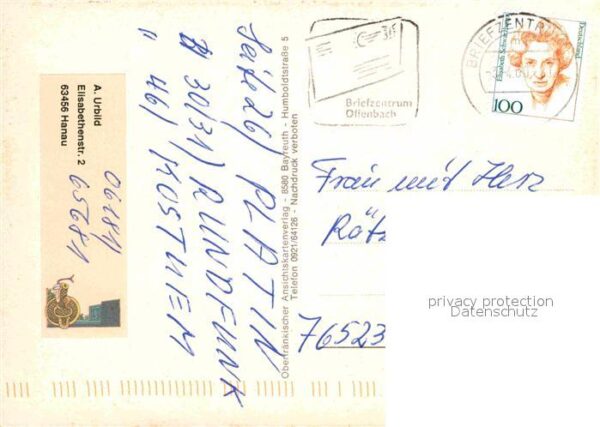 A. Urbild
Elisabethenstr. 2
63456 Hanau
06181/
65681
Seite 26) PLATIN
" 30/31) RUNDFUNK
" 46) KOSTHEIM
Oberfränkischer Ansichtskartenverlag - 8580 Bayreuth - Humboldtstraße 5
Telefon 0921/64126 - Nachdruck verboten
Briefzentrum
Offenbach
BRIEFZENTRUM
Deutschland
100
Frau mit Herz
76523
privacy protection
Datenschutz